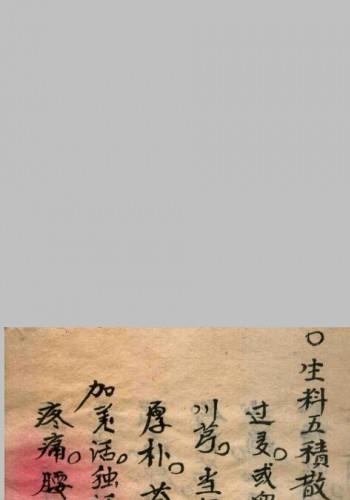 ○生料五積散
过或
川芎。当
厚朴。
加羌活。独
疼痛。腰